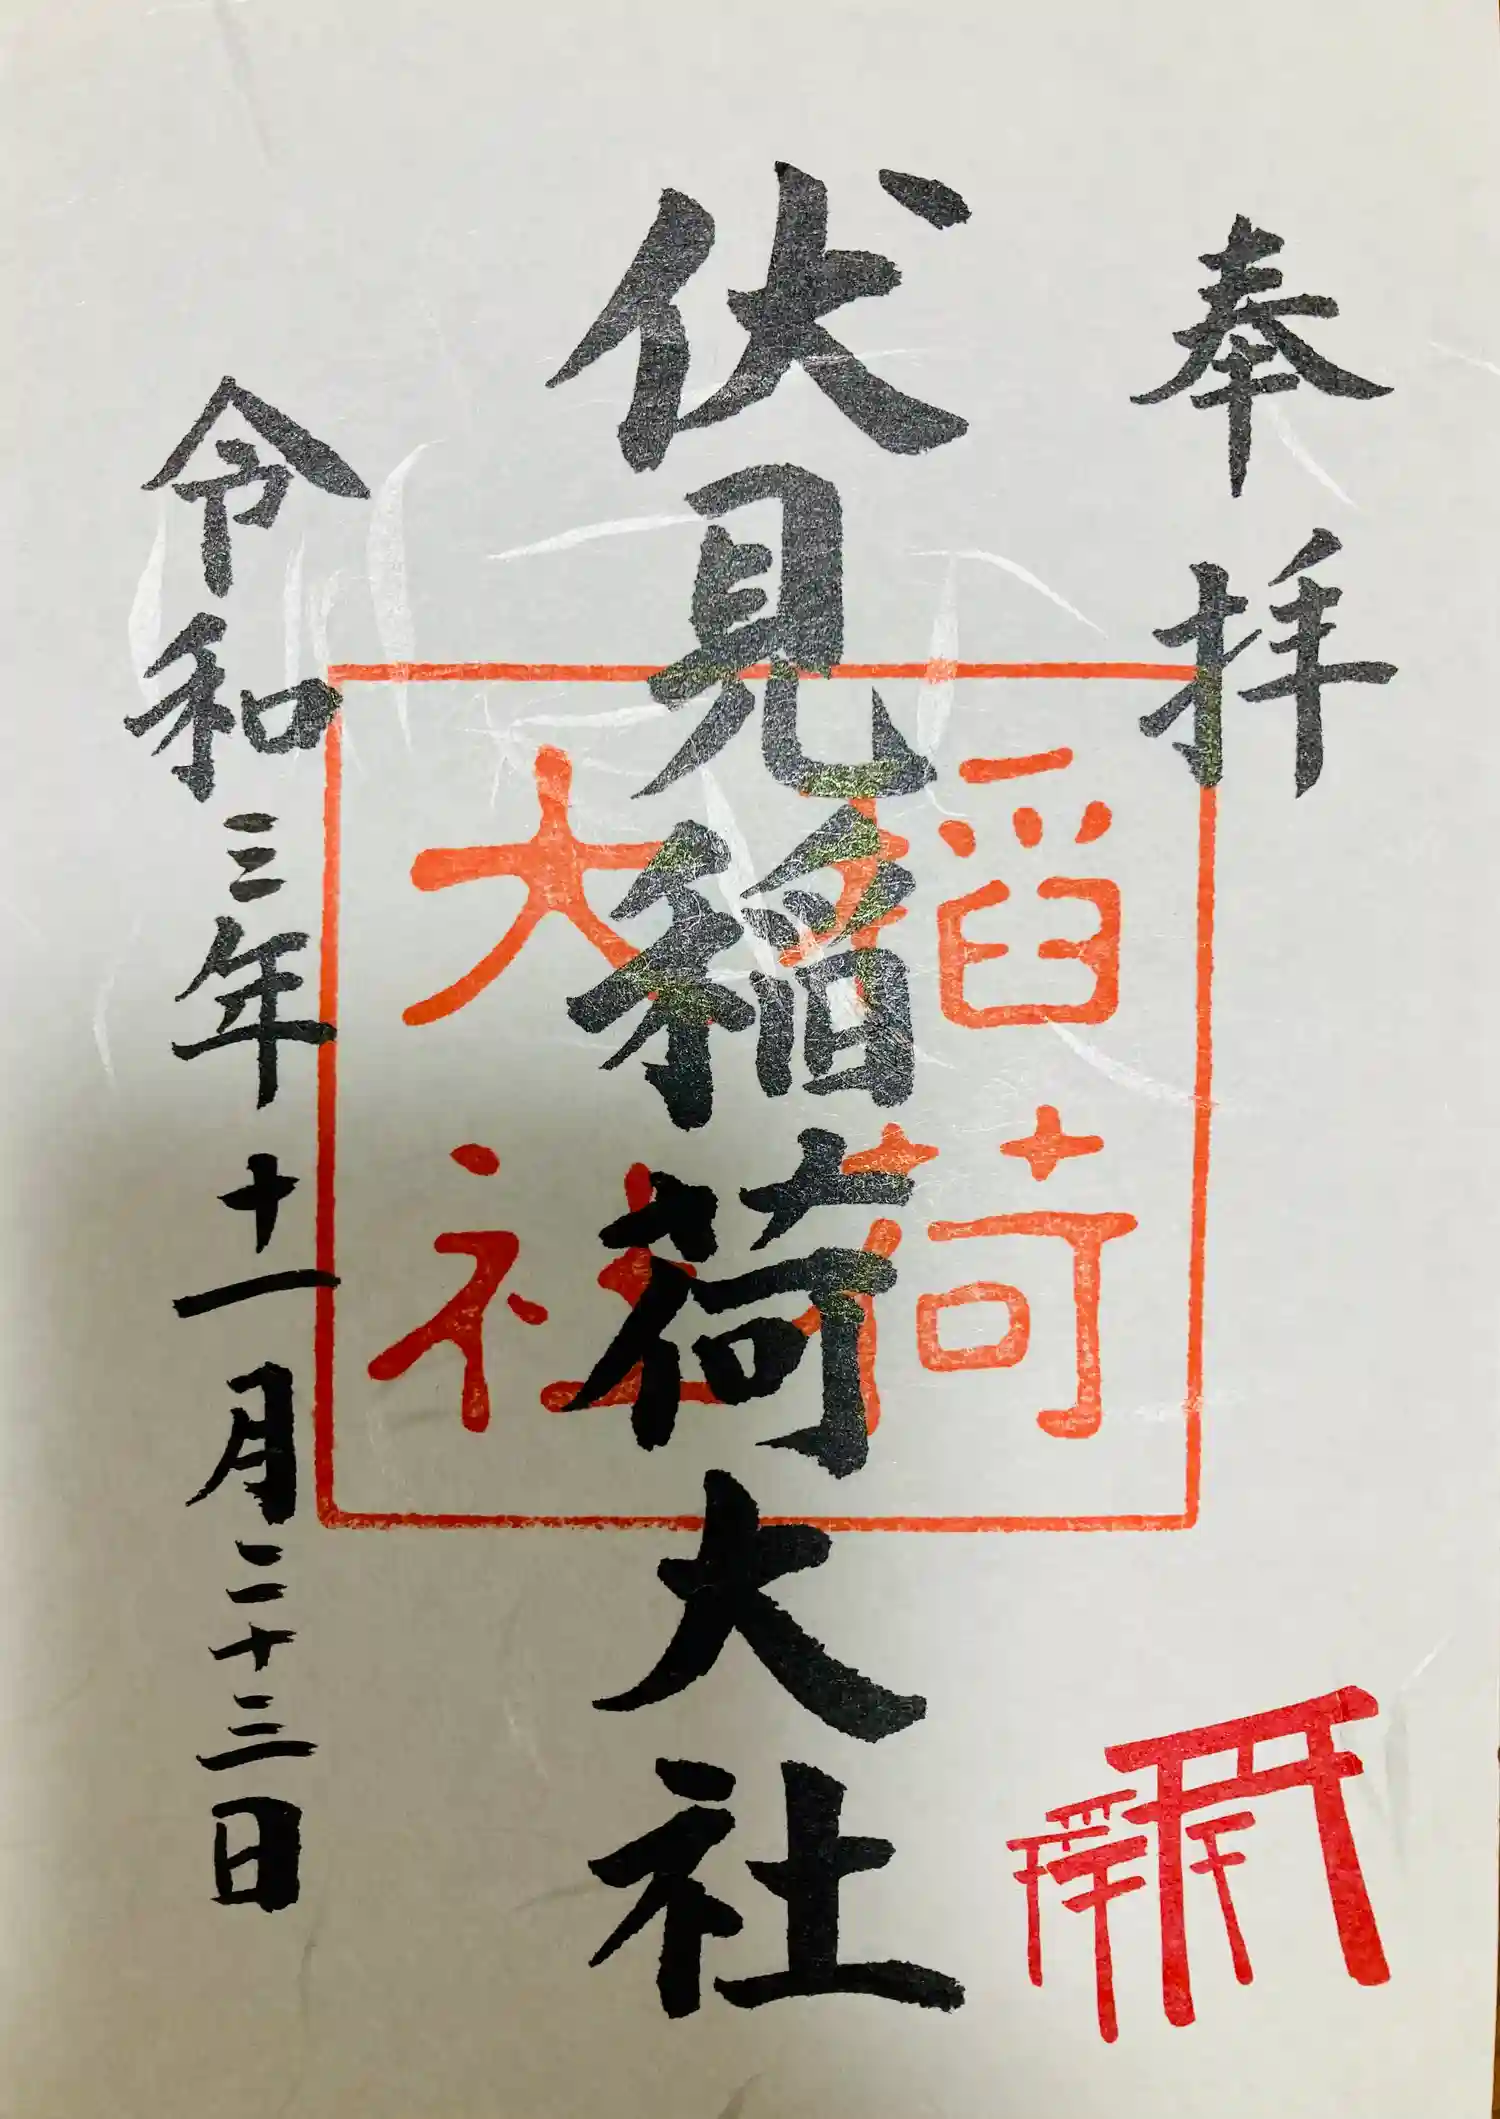 奉拝
伏見稲荷大社
稲荷
大社
令和三年十一月二十三日